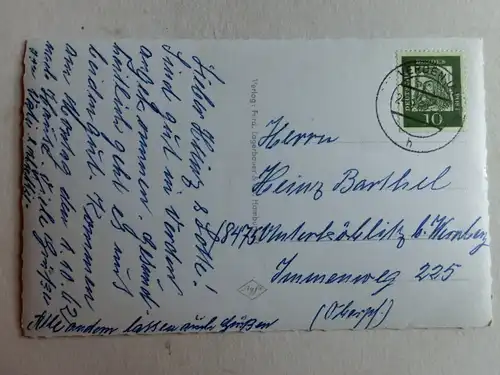 Lieber Heinz & Lotte!
Sind gut in Verden
angekommen. Gesund-
heitlich geht es uns
beiden gut. Kommen
am Montag den 1.10.62
nach Hause. Viele Grüße
von
Alle andern lassen auch Grüßen
Verlag: Ferd. Lagerbauer
Hamburg
Agfa
VERDEN
DEUTSCHE BUNDESPOST
10
h
Herrn
Heinz Barthel
8475 Unterköblitz b. Wernberg
Immenweg 225
(Oberpf.)